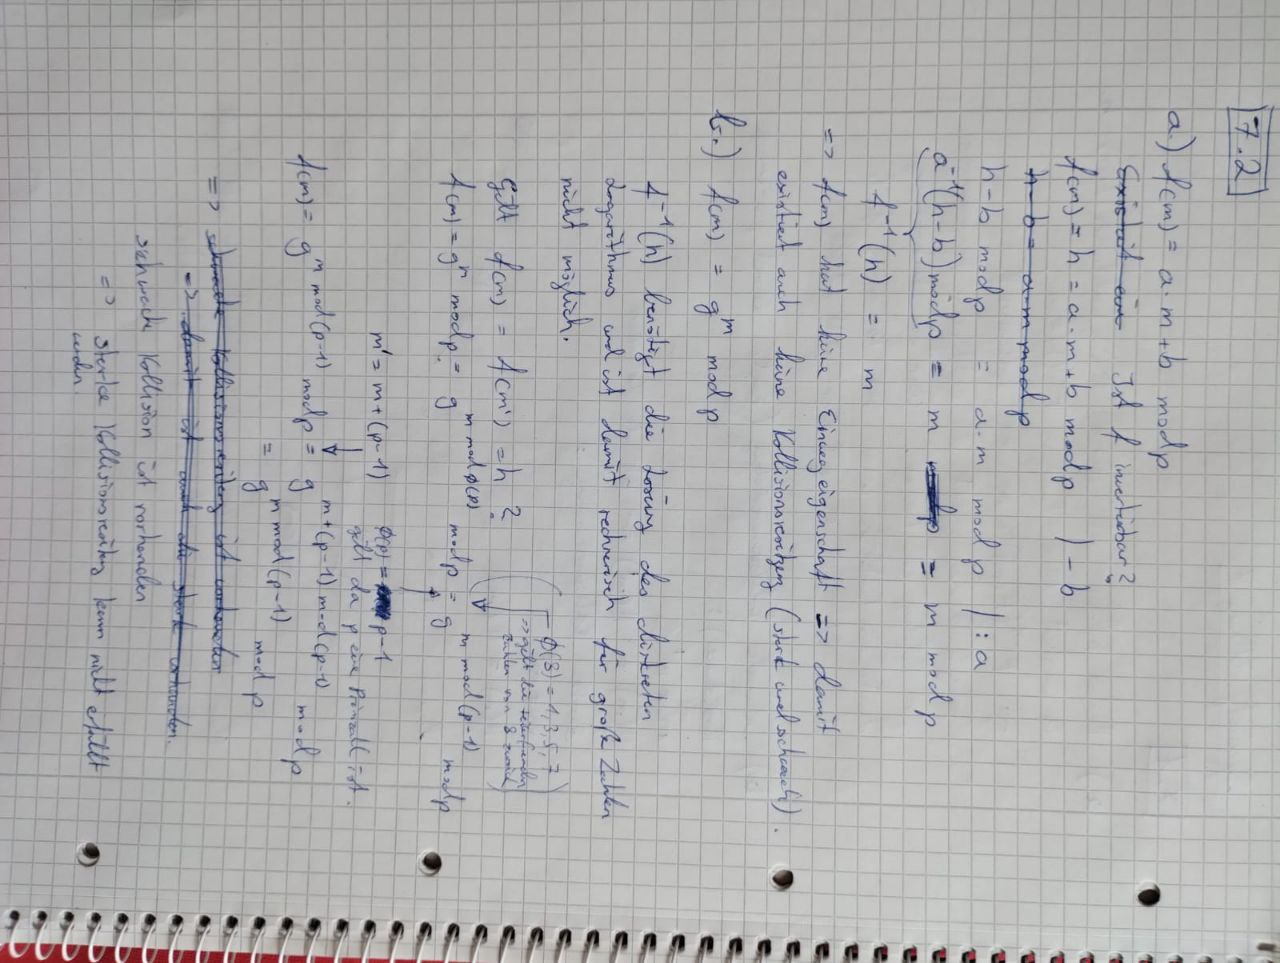 7.2
a.) f(m) = a·m+b mod p
Existiert ein Ist f invertierbar?
f(m) = h = a·m+b mod p | - b
h-b = a·m mod p
h-b mod p = a·m mod p | : a
a⁻¹(h-b) mod p = m mod p = m mod p
f⁻¹(h) = m
=> f(m) hat keine Einwegeigenschaft => damit
existiert auch keine Kollisionsresitenz (stark und schwach).
b.) f(m) = g^m mod p
f⁻¹(h) benötigt die Lösung des diskreten
Logarithmus und ist damit rechnerisch für große Zahlen
nicht möglich.
ϕ(8) = 1,3,5,7
=> gibt die teilerfremden
Zahlen von 8 zurück
Gilt f(m) = f(m') = h ?
f(m) = g^m mod p = g^(m mod ϕ(p)) mod p = g^(m mod (p-1)) mod p
m' = m + (p-1)
ϕ(p) = p-1
gilt da p eine Primzahl ist.
f(m) = g^(m mod (p-1)) mod p = g^(m+(p-1) mod (p-1)) mod p
= g^(m mod (p-1)) mod p
=> schwache Kollisionsresitenz ist vorhanden
=> damit ist auch die stark vorhanden.
schwache Kollision ist vorhanden
=> starke Kollisionsresitenz kann nicht erfüllt
werden.